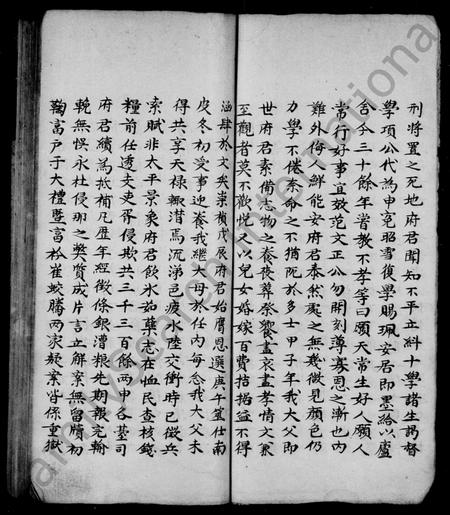 刑將置之死地府君聞知不平立糾十學諸生謁督
學項公代為申寃昭雪復學賜珮安居即墨給以廬
舍今三十餘年嘗教不孝等曰願天常生好人願人
常行好事宜效范文正公勿開刻薄寡恩之漸也內
難外侮人鮮能安府君泰然處之無幾微見顏色仍
力學不倦奈命之不猶阨於多士甲子年我大父即
世府君素備志物之養夜葬祭饗盡哀盡孝情文兼
至觀者莫不歡悅又以兒女婚嫁百費拮据益不得
涵肆於文矣崇禎戊辰府君始膺恩選庚午筮仕南
皮冬初受事迎養我繼大母於任內每念我大父未
得共享天祿輙潸焉流涕邑疲水陸交衝時已徵兵
索賦非太平景象府君飲氷茹蘗志在恤民查核錢
糧前任透支吏胥侵欺共三千三百餘兩申各臺司
府君續為抵補凡歷年經徵條銀漕糧先期報完輸
輓無悞永杜侵那之獘質成片言立解案無留牘初
鞫富戶于大禮曁富衿崔蛟騰兩家疑案皆係重獄